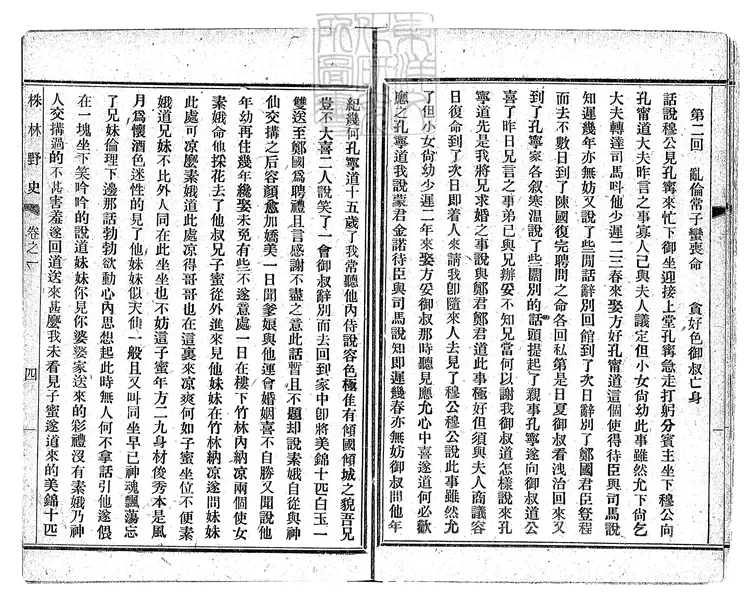 第二回　亂倫常子蠻喪命　貪好色御叔亡身
話說穆公見孔寗來忙下御坐迎接上堂孔寗急走打躬分賓主坐下穆公向
孔甯道大夫昨言之事寡人已與夫人議定但小女尙幼此事雖然允下尙乞
大夫轉達司馬呌他少遲二三春來娶方好孔甯道這個使得待臣與司馬說
知遲幾年亦無妨又說了些閒話辭別回館到了次日辭別了鄭國君臣登程
而去不數日到了陳國復完聘問之命各回私第是日夏御叔看洩治回來又
到了孔寗家各叙寒温說了些閒別的話頭提起了親事孔甯遂向御叔道公
喜了昨日兄言之事弟已與兄辦妥不知兄當何以謝我御叔道怎樣說來孔
寧道先是我將兄求婚之事說與鄭君鄭君道此事極好但須與夫人商議容
日復命到了次日即着人來請我卽隨來人去見了穆公穆公說此事雖然允
了但小女尙幼少遲二年來娶方妥御叔那時聽見應允心中喜遂道何必歡
應之孔寧道我說蒙君金諾待臣與司馬說知即遲幾春亦無妨御叔問他年
紀幾何孔寧道十五歲了我常聽他內侍說容色極佳有傾國傾城之貌吾兄
豈不大喜二人說笑了一會御叔辭別而去回到家中卽將美錦十匹白玉一
雙送至鄭國爲聘禮且言感謝不盡之意此話暫且不題却說素娥自從與神
仙交搆之后容顏愈加嬌美一日聞爹娘與他運會婚姻喜不自勝又聞說他
年幼再住幾年纔娶未免有些不遂意處一日在樓下竹林內納凉兩個使女
素娥命他採花去了他叔兄子蜜從外進來見他妹妹在竹林納凉遂問妹妹
此處可凉麽素娥道此處凉得哥哥也在這裏來凉爽何如子蜜坐位不便素
娥道兄妹不比外人同在此坐坐也不妨這子蜜年方二九身材俊秀本是風
月爲懷酒色迷性的見了他妹妹似天仙一般且又呌同坐早已神魂飄蕩忘
了兄妹倫理下邊那話勃勃欲動心內思想起此時無人何不拿話引他遂偎
在一塊坐下笑吟吟的說道妹妹你見你婆婆家送來的彩禮沒有素娥乃神
人交搆過的不甚害羞遂回道送來甚麽我未看見子蜜遂道來的美錦十匹
株林野史　卷之一　四